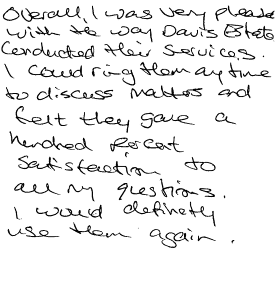 Overall, I was very please
with the way Davis Estate
Conducted their services.
I could ring them any time
to discuss matters and
felt they gave a
hundred percent
satisfaction to
all my questions.
I would definetly
use them again.